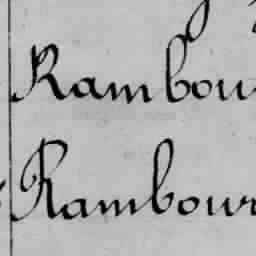 Rambou
Rambour